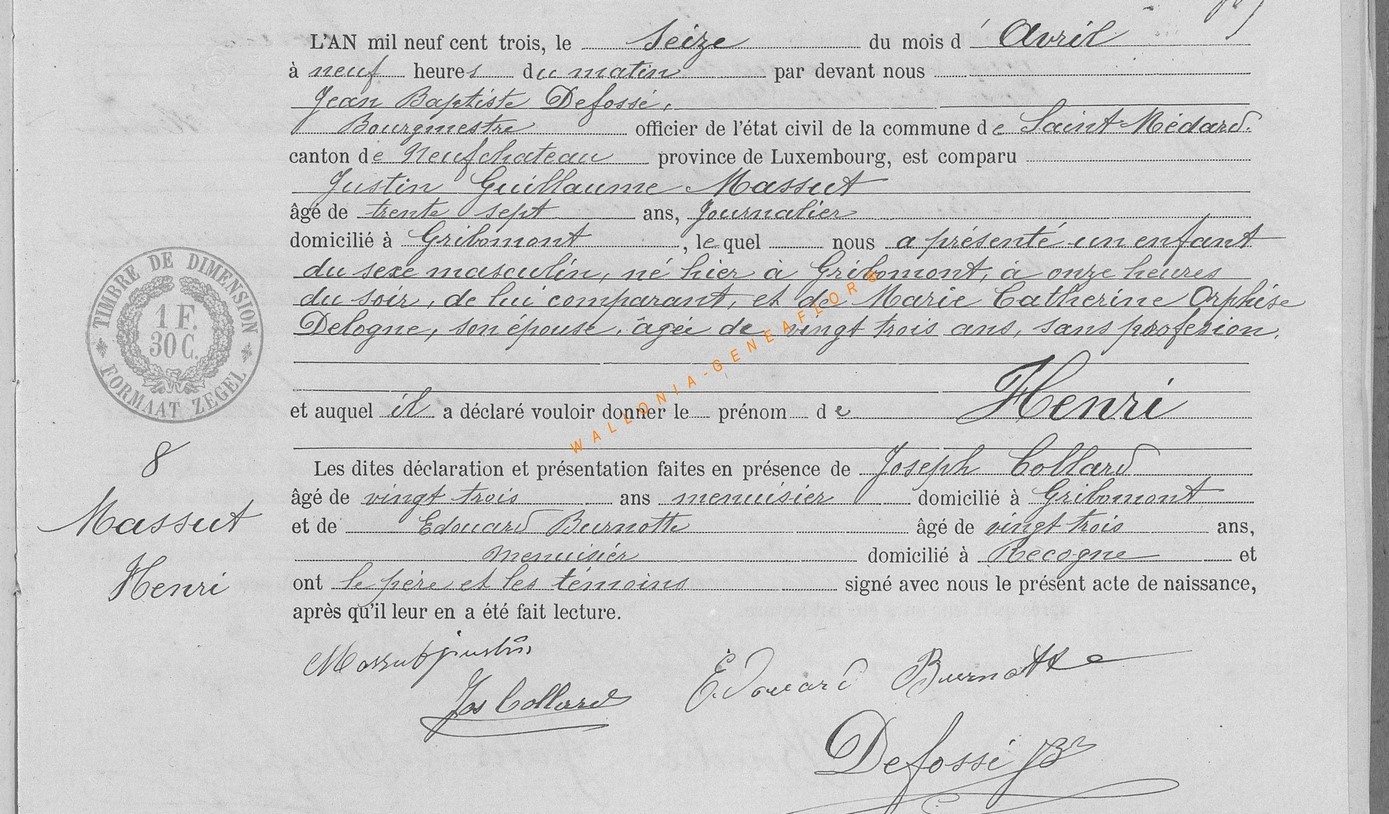 L'AN mil neuf cent trois, le Seize du mois d' Avril
à neuf heures du matin par devant nous
Jean Baptiste Defossé,
Bourgmestre officier de l'état civil de la commune de Saint-Médard.
canton de Neufchateau province de Luxembourg, est comparu
Justin Guillaume Massut
âgé de trente sept ans, Journalier
domicilié à Gribomont, lequel nous a présenté un enfant
du sexe masculin, né hier à Gribomont, à onze heures
du soir, de lui comparant, et de Marie Catherine Orphise
Delogne, son épouse, âgée de vingt trois ans, sans profession.
TIMBRE DE DIMENSION
1 F.
30 C.
FORMAAT ZEGEL
WALLONIA-GENEAFLORE
et auquel il a déclaré vouloir donner le prénom de Henri
8
Massut
Henri
Les dites déclaration et présentation faites en présence de Joseph Collard
âgé de vingt trois ans menuisier domicilié à Gribomont
et de Edouard Burnotte âgé de vingt trois ans,
menuisier domicilié à Recogne et
ont le père et les témoins signé avec nous le présent acte de naissance,
après qu'il leur en a été fait lecture.
Massut justin
Jos Collard
Edouard Burnotte
Defossé JB